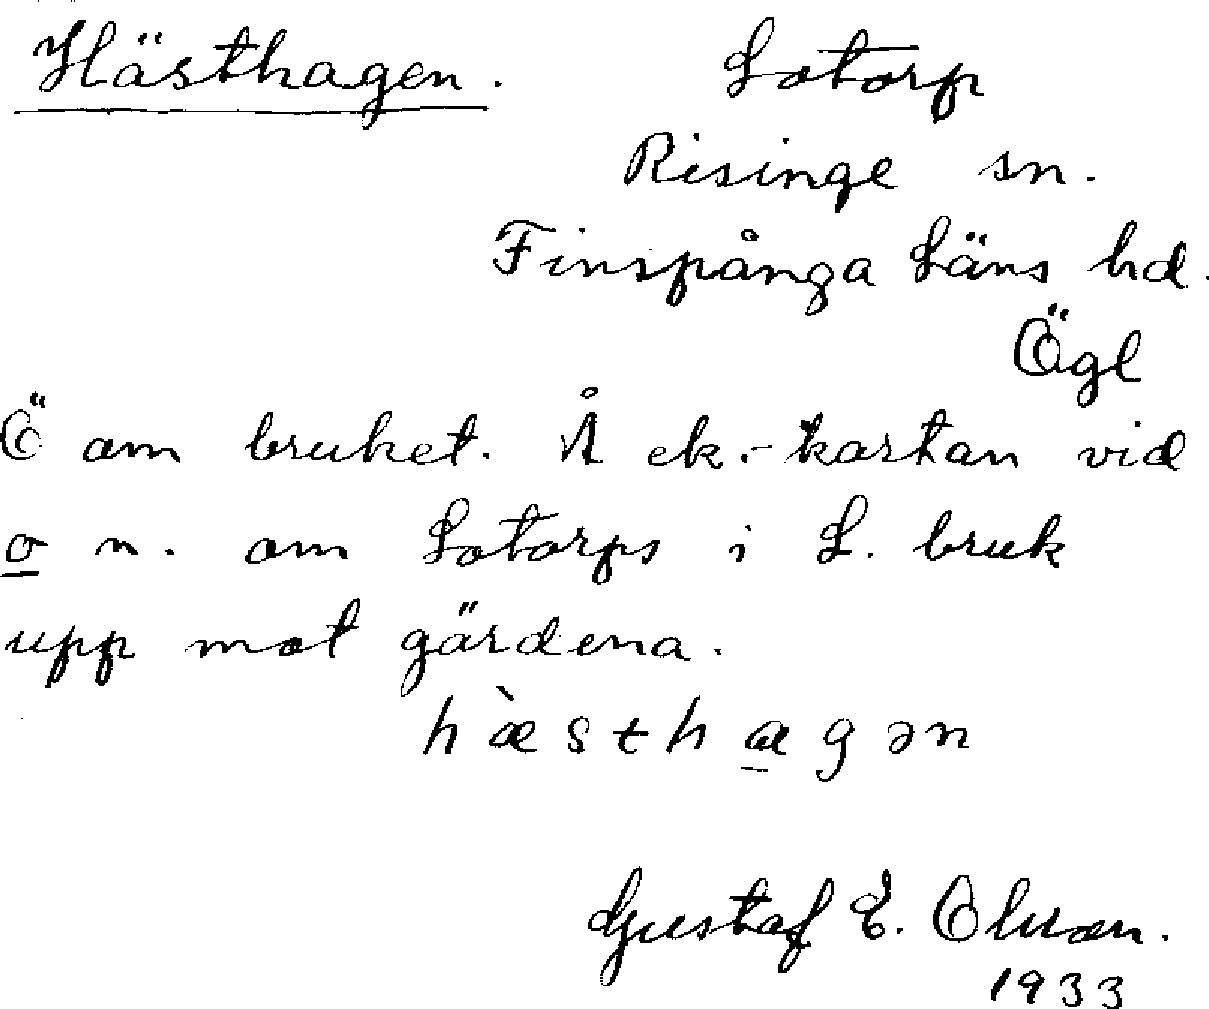 Hästhagen. Lotorp
Risinge sn.
Finspånga Läns hd.
Ögl
Ö om bruket. Å ek.-kartan vid
o n. om Lotorps i L. bruk
upp mot gärdena.
hæ̀sthagən
Gustaf E. Olsson.
1933